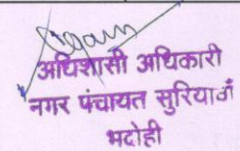 अधिशासी अधिकारी
नगर पंचायत सुरियावाँ
भदोही